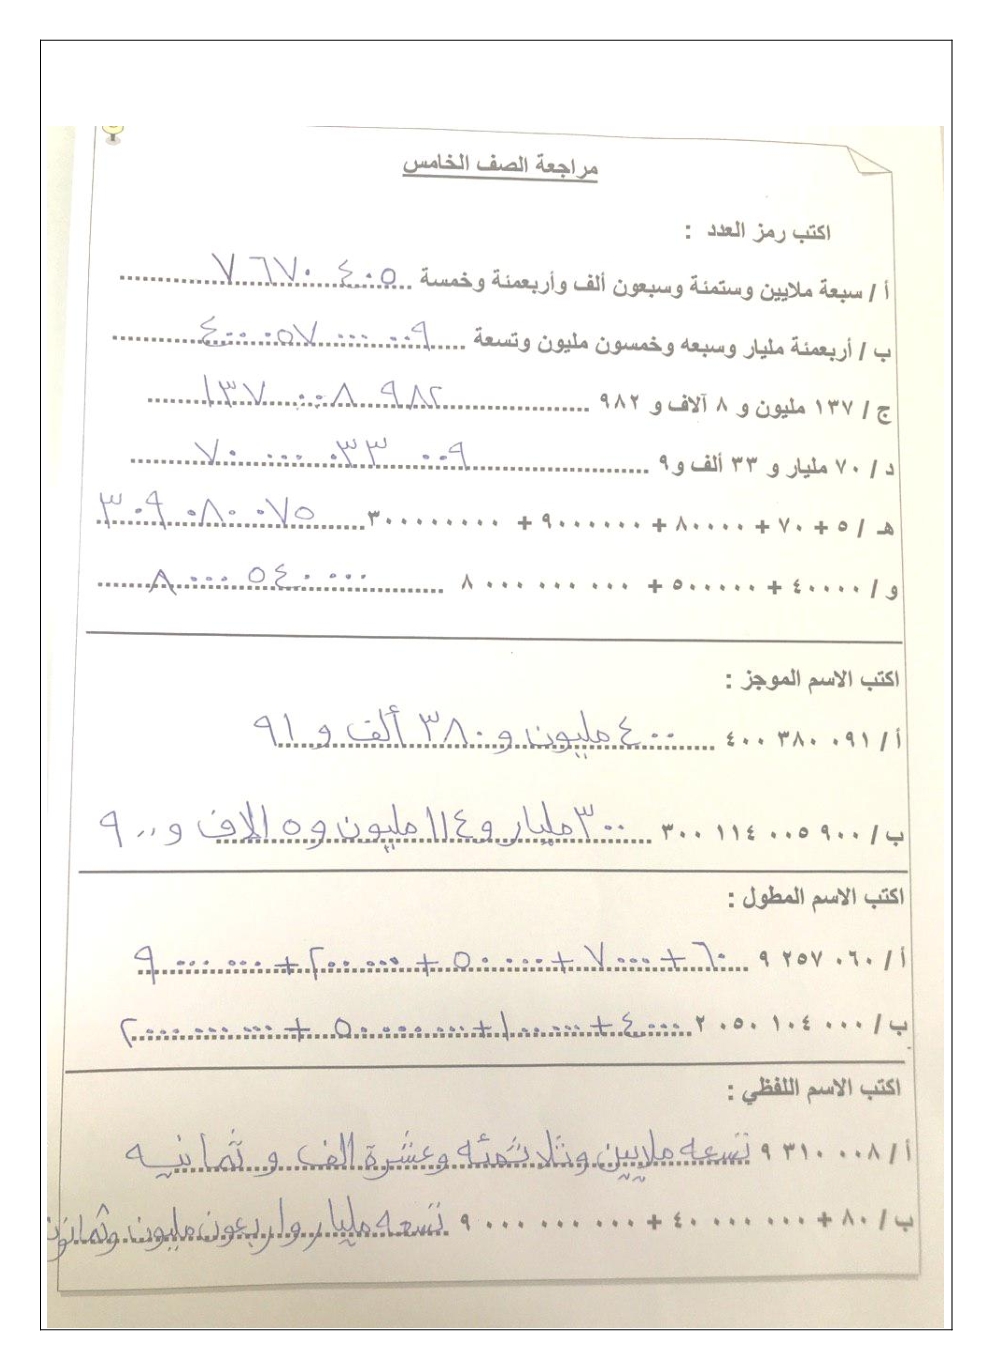 مراجعة الصف الخامس
اكتب رمز العدد :
أ / سبعة ملايين وستمئة وسبعون ألف وأربعمئة وخمسة ٧ ٦٧٠ ٤٠٥
ب / أربعمئة مليار وسبعه وخمسون مليون وتسعة ٤٠٠ ٠٥٧ ٠٠٠ ٠٠٩
ج / ١٣٧ مليون و ٨ آلاف و ٩٨٢ ١٣٧ ٠٠٨ ٩٨٢
د / ٧٠ مليار و ٣٣ ألف و ٩ ٧٠ ٠٠٠ ٠٣٣ ٠٠٩
هـ / ٥ + ٧٠ + ٨٠٠٠٠ + ٩٠٠٠٠٠٠ + ٣٠٠٠٠٠٠٠٠ ٣٠٩ ٠٨٠ ٠٧٥
و / ٤٠٠٠٠ + ٥٠٠٠٠٠ + ٨ ٠٠٠ ٠٠٠ ٠٠٠ ٨ ٠٠٠ ٥٤٠ ٠٠٠
اكتب الاسم الموجز :
أ / ٤٠٠ ٣٨٠ ٠٩١ ٤٠٠ مليون و ٣٨٠ ألف و ٩١
ب / ٣٠٠ ١١٤ ٠٠٥ ٩٠٠ ٣٠٠ مليار و ١١٤ مليون و ٥ الاف و ٩٠٠
اكتب الاسم المطول :
أ / ٩ ٢٥٧ ٠٦٠ ٦٠ + ٧٠٠٠ + ٥٠ ٠٠٠ + ٢٠٠ ٠٠٠ + ٩ ٠٠٠ ٠٠٠
ب / ٢ ٠٥٠ ١٠٤ ٠٠٠ ٤٠٠٠ + ١٠٠ ٠٠٠ + ٥٠ ٠٠٠ ٠٠٠ + ٢ ٠٠٠ ٠٠٠ ٠٠٠
اكتب الاسم اللفظي :
أ / ٩ ٣١٠ ٠٠٨ تسعه ملايين وثلاثمئه وعشرة الف و ثمانيه
ب / ٨٠ + ٤٠ ٠٠٠ ٠٠٠ + ٩ ٠٠٠ ٠٠٠ ٠٠٠ تسعه مليار واربعون مليون وثمانون